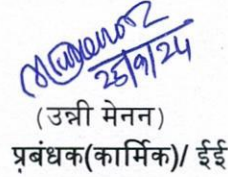 26/9/24
(उन्नी मेनन)
प्रबंधक(कार्मिक)/ ईई